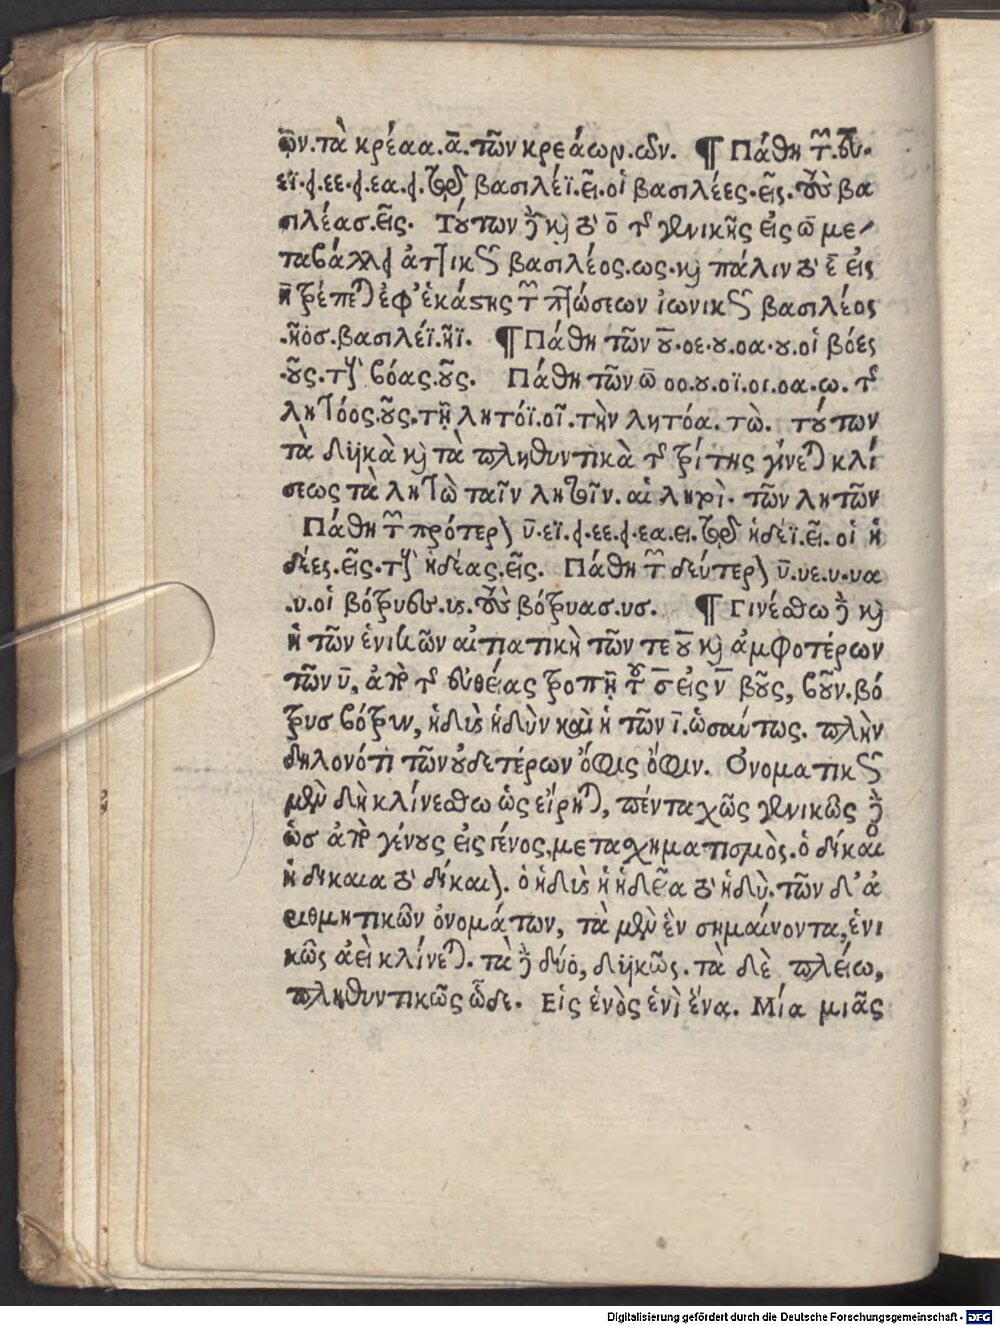 ῶν. τὰ κρέαα. ᾱ. τῶν κρεάων. ῶν. ¶ Πάθη τῶν. ευ.
εϊ. ει. εε. ει. εα. ει. τῷ βασιλέϊ. εῖ. οἱ βασιλέες. εῖς. τοὺς βα
σιλέας. εῖς. Τούτων δὲ καὶ τὸ ο̄ τῆς γενικῆς εἰς ω̄ με-
ταβάλλει ἀττικῶς βασιλέος. ως. καὶ πάλιν τὸ ε̄ εἰς
η̄ τρέπεται ἐφ' ἑκάστης τῶν πτώσεων ἰωνικῶς βασιλέος
.ῆος. βασιλέϊ. ῆϊ. ¶ Πάθη τῶν ου. οε. ου. οα. ου. οἱ βόες
.οῦς. τοὺς βόας. οῦς. Πάθη τῶν ω̄ οο. ου. οϊ. οι. οα. ω. τῆς
λητόος. οῦς. τῇ λητόϊ. οῖ. τὴν λητόα. τώ. τούτων
τὰ δυϊκὰ καὶ τὰ πληθυντικὰ τῆς τρίτης γίνεται κλί
σεως τὰ λητὼ ταῖν λητοῖν. αἱ λητοὶ. τῶν λητῶν
Πάθη τῶν πρότερον ῡ. εϊ. ει. εε. ει. εα. ει. τῷ ἡδέϊ. εῖ. οἱ ἡ
δέες. εῖς. τοὺς ἡδέας. εῖς. Πάθη τῶν δεύτερον ῡ. υε. υ. υα
.υ. οἱ βότρυες. υς. τοὺς βότρυας. υς. ¶ Γινέσθω δὲ καὶ
ἡ τῶν ἑνικῶν αἰτιατικὴ τῶν τε ου καὶ ἀμφοτέρων
τῶν ῡ, ἀπὸ τῆς εὐθείας τροπῇ τοῦ σ̄ εἰς ν̄ βοῦς, βοῦν. βό
τρυς βότρυν, ἡδὺς ἡδὺν καὶ ἡ τῶν ῑ. ὡσαύτως. πλὴν
δηλονότι τῶν οὐδετέρων ὄφις ὄφιν. Ὀνοματικῶς
μὲν δὴ κλίνεσθω ὡς εἴρηται, πένταχῶς γενικῶς δὲ
ὡς ἀπὸ γένους εἰς γένος, μετασχηματισμὸς. ὁ δίκαιος
ἡ δικαια τὸ δίκαιον. ὁ ἡδὺς ἡ ἡδεῖα τὸ ἡδὺ. τῶν δ' ἀ
ριθμητικῶν ὀνομάτων, τὰ μὲν ἓν σημαίνοντα, ἑνι
κῶς ἀεὶ κλίνεται. τὰ δὲ δύο, δυϊκῶς. τὰ δὲ πλείω,
πληθυντικῶς ὧδε. Εἷς ἑνὸς ἑνὶ ἕνα. Μία μιᾶς
Digitalisierung gefördert durch die Deutsche Forschungsgemeinschaft - DFG